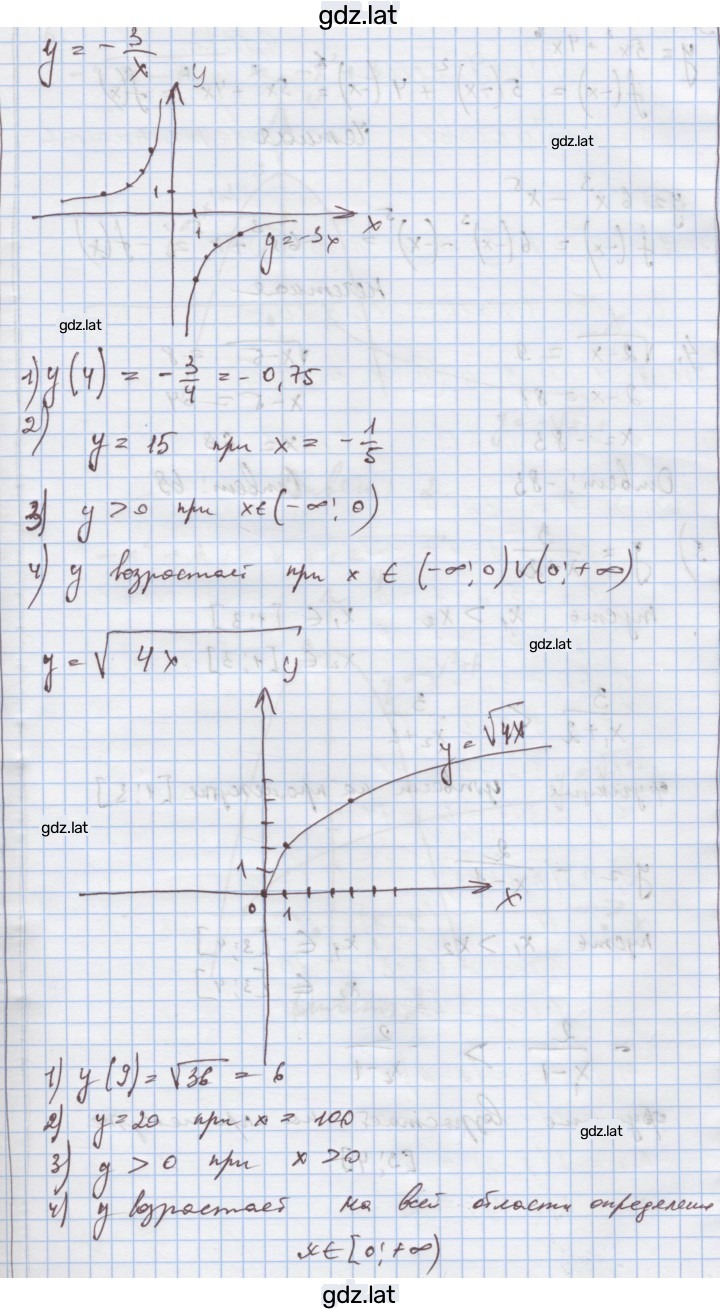 gdz.lat
y = - 3/x
y
gdz.lat
1
x
1
y=-3x
gdz.lat
1) y(4) = - 3/4 = - 0,75
2)
y = 15 при x = - 1/5
3) y > 0 при x ∈ (-∞; 0)
4) y возрастает при x ∈ (-∞; 0) ∨ (0; +∞)
y = √4x
gdz.lat
y
y = √4x
gdz.lat
1
0 1
x
1) y(9) = √36 = 6
2) y = 20 при x = 100
gdz.lat
3) y > 0 при x > 0
4) y возрастает на всей области определения
x ∈ [0; +∞)
gdz.lat